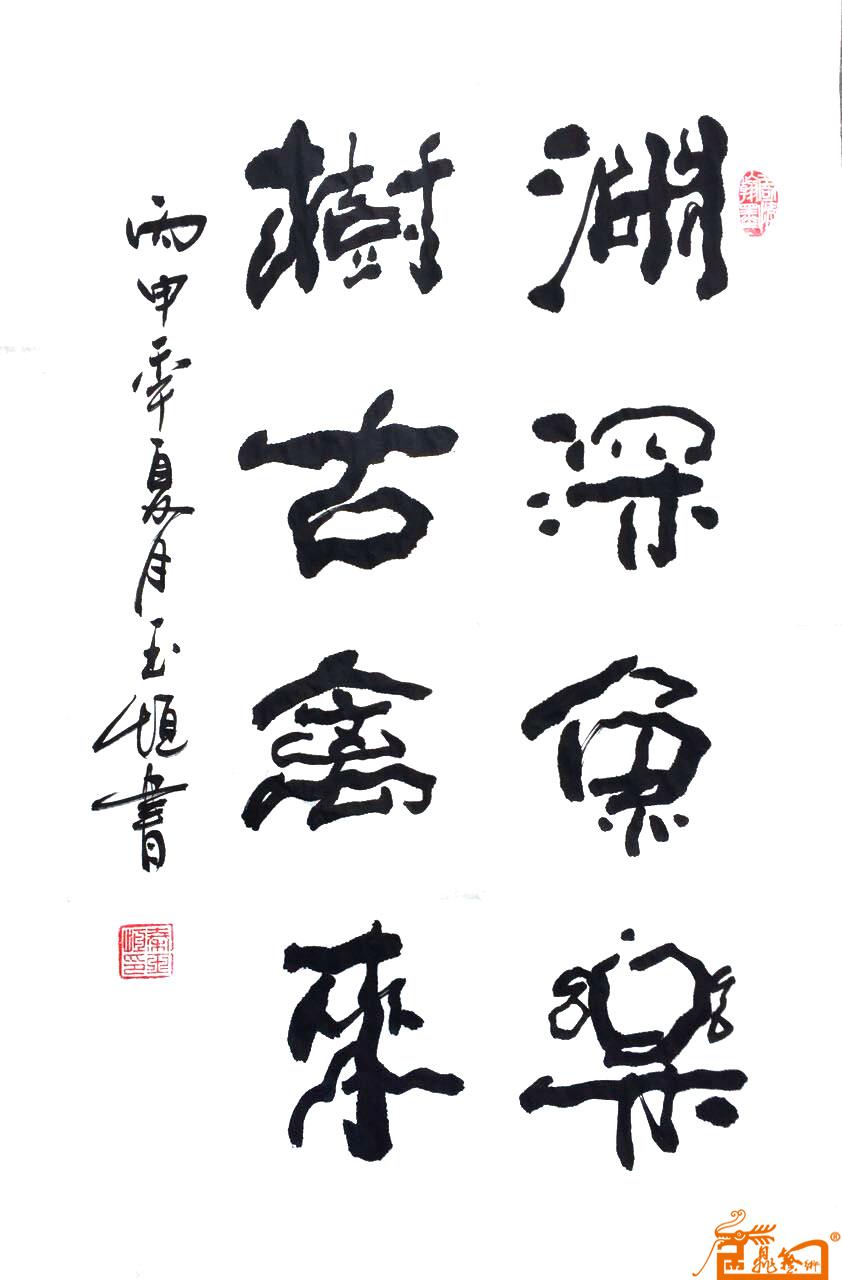 淵深魚樂
樹古禽來
丙申年夏月玉恒書